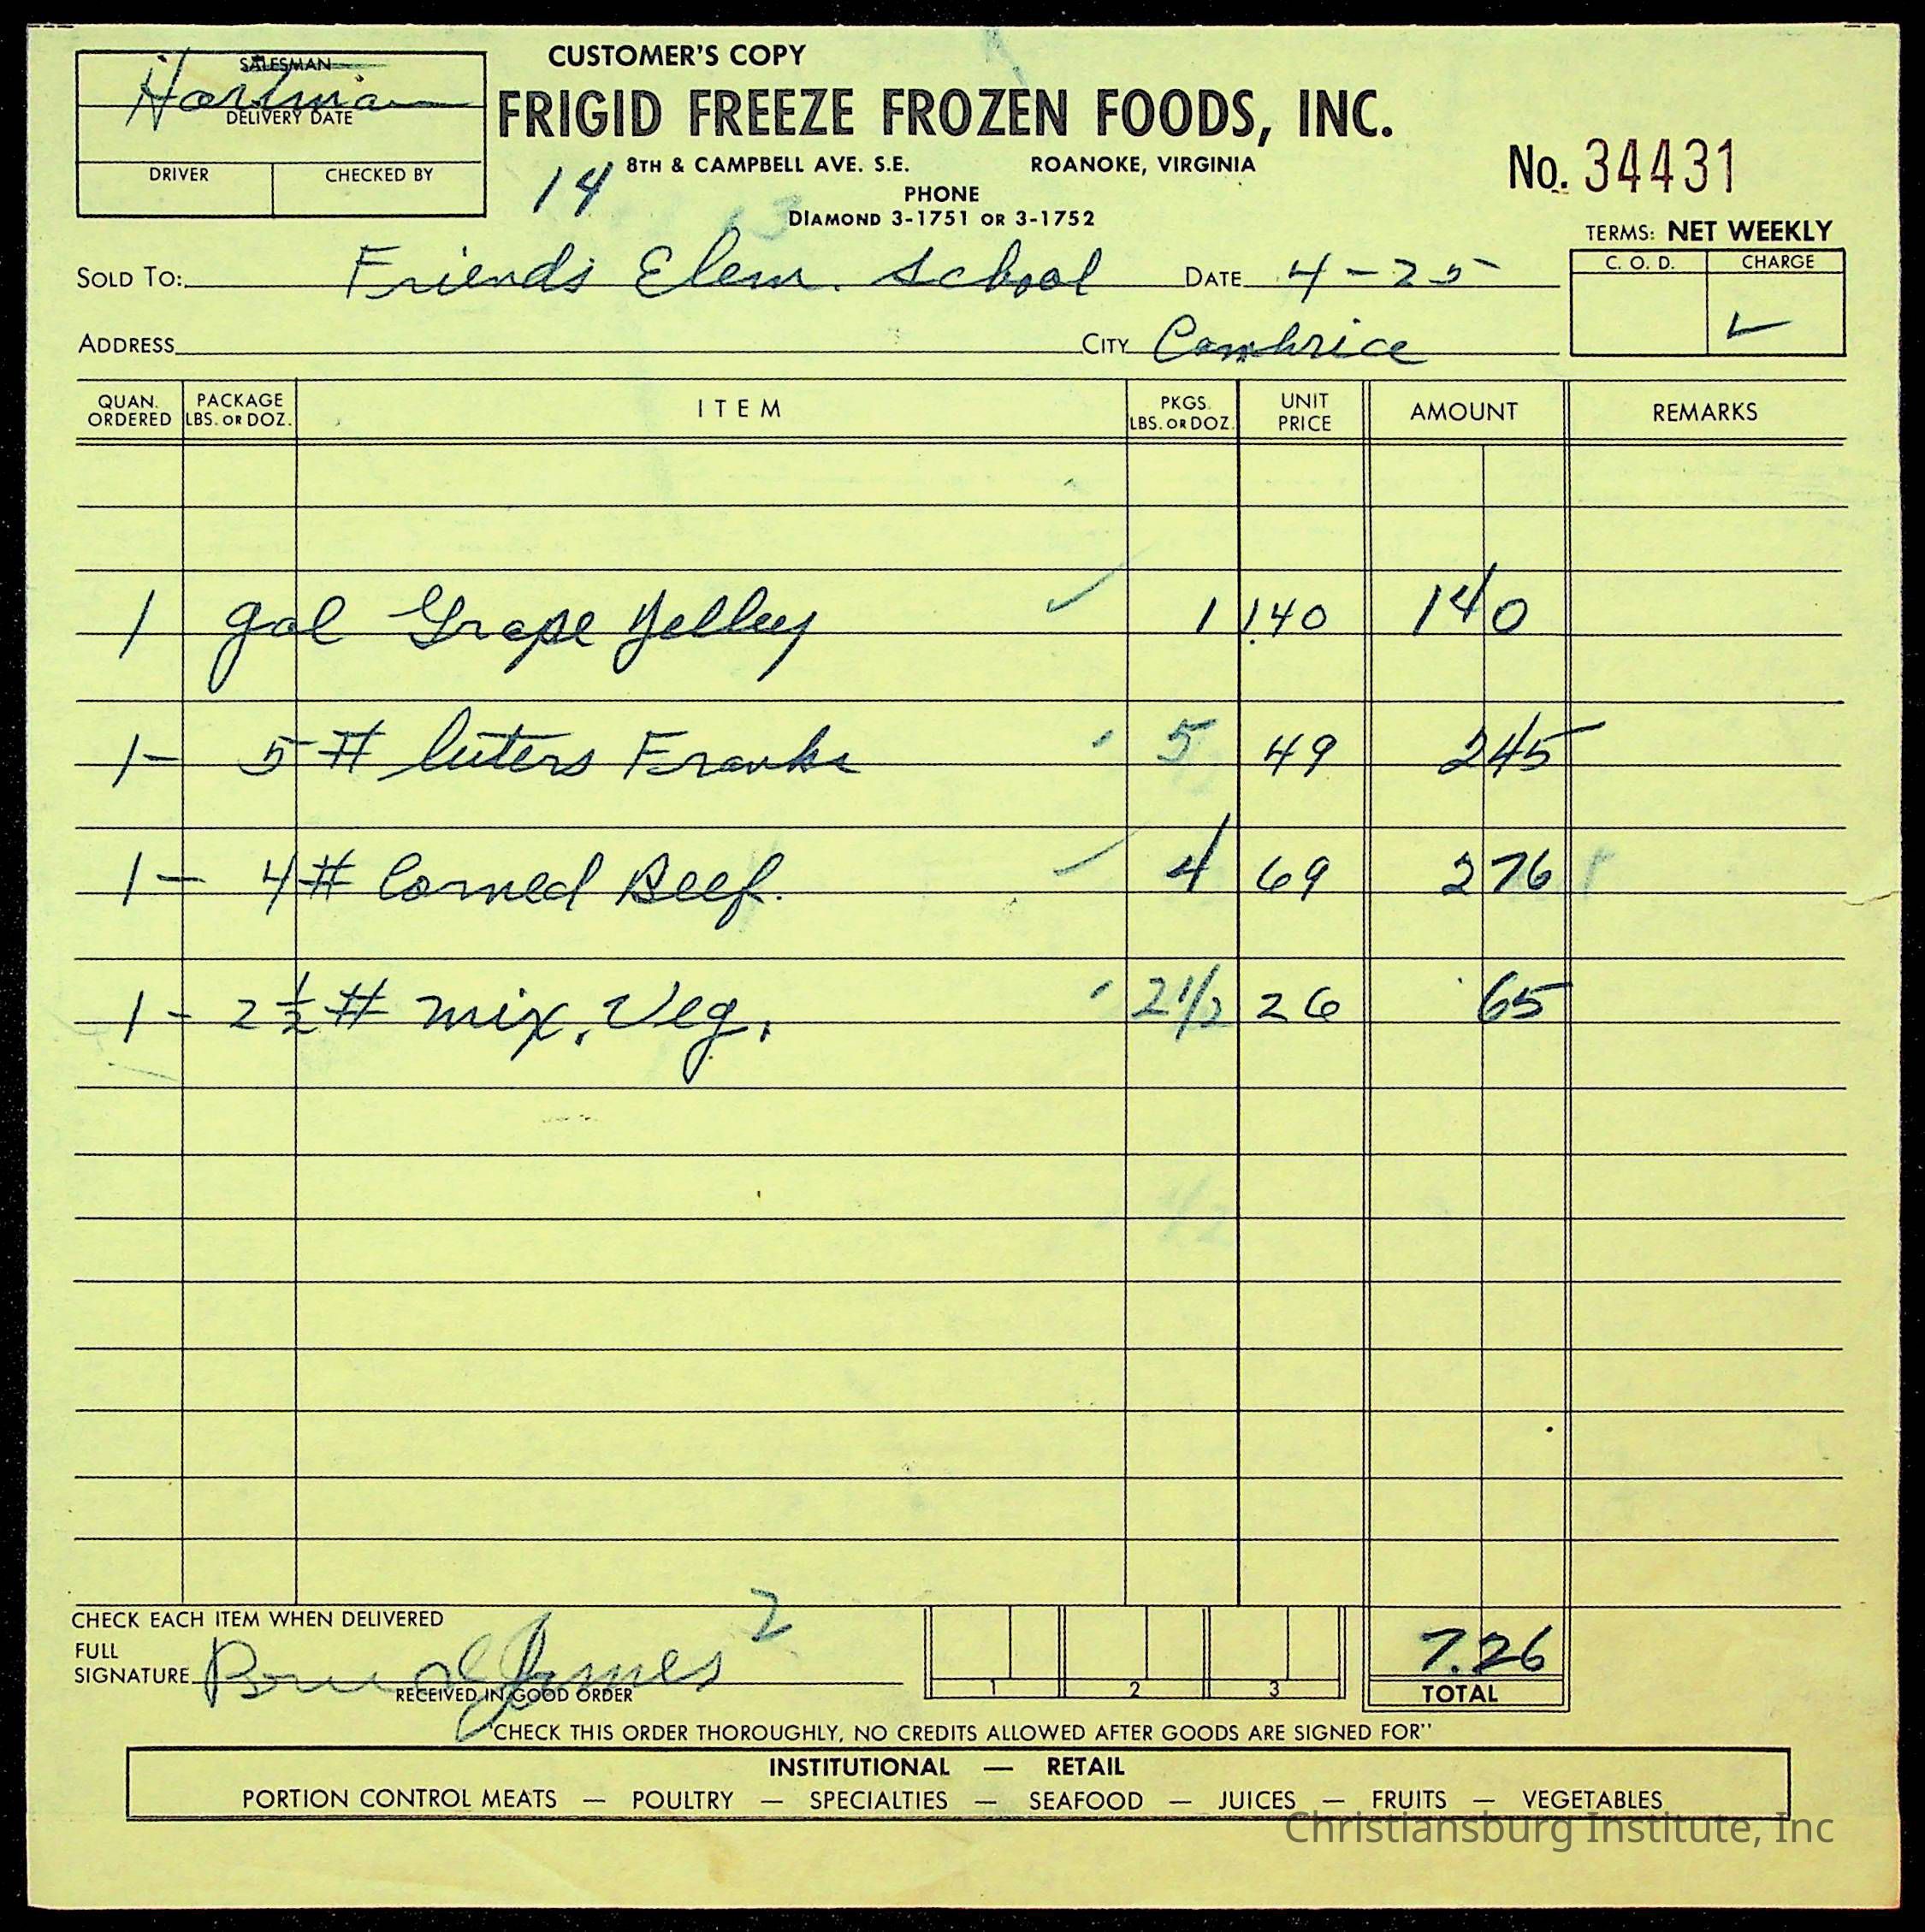 CUSTOMER'S COPY
SALESMAN
Hartman
DELIVERY DATE
DRIVER CHECKED BY
FRIGID FREEZE FROZEN FOODS, INC.
14 8TH & CAMPBELL AVE. S.E. ROANOKE, VIRGINIA
PHONE
DIAMOND 3-1751 OR 3-1752
No. 34431
TERMS: NET WEEKLY
C. O. D. CHARGE
✓
SOLD TO: Friends Elem. School DATE 4-25
ADDRESS CITY Cambrice
QUAN. ORDERED PACKAGE LBS. OR DOZ. ITEM PKGS. LBS. OR DOZ. UNIT PRICE AMOUNT REMARKS
1 gal Grape Yelley ✓ 1 1.40 1 40
1- 5# luters Franks 5 49 2 45
1- 4# Corned Beef. ✓ 4 69 2 76
1- 2½# mix. Veg. 2 1/2 26 65
CHECK EACH ITEM WHEN DELIVERED 2
FULL
SIGNATURE James
RECEIVED IN GOOD ORDER
1 2 3
7.26
TOTAL
"CHECK THIS ORDER THOROUGHLY, NO CREDITS ALLOWED AFTER GOODS ARE SIGNED FOR"
INSTITUTIONAL — RETAIL
PORTION CONTROL MEATS — POULTRY — SPECIALTIES — SEAFOOD — JUICES — FRUITS — VEGETABLES
Christiansburg Institute, Inc